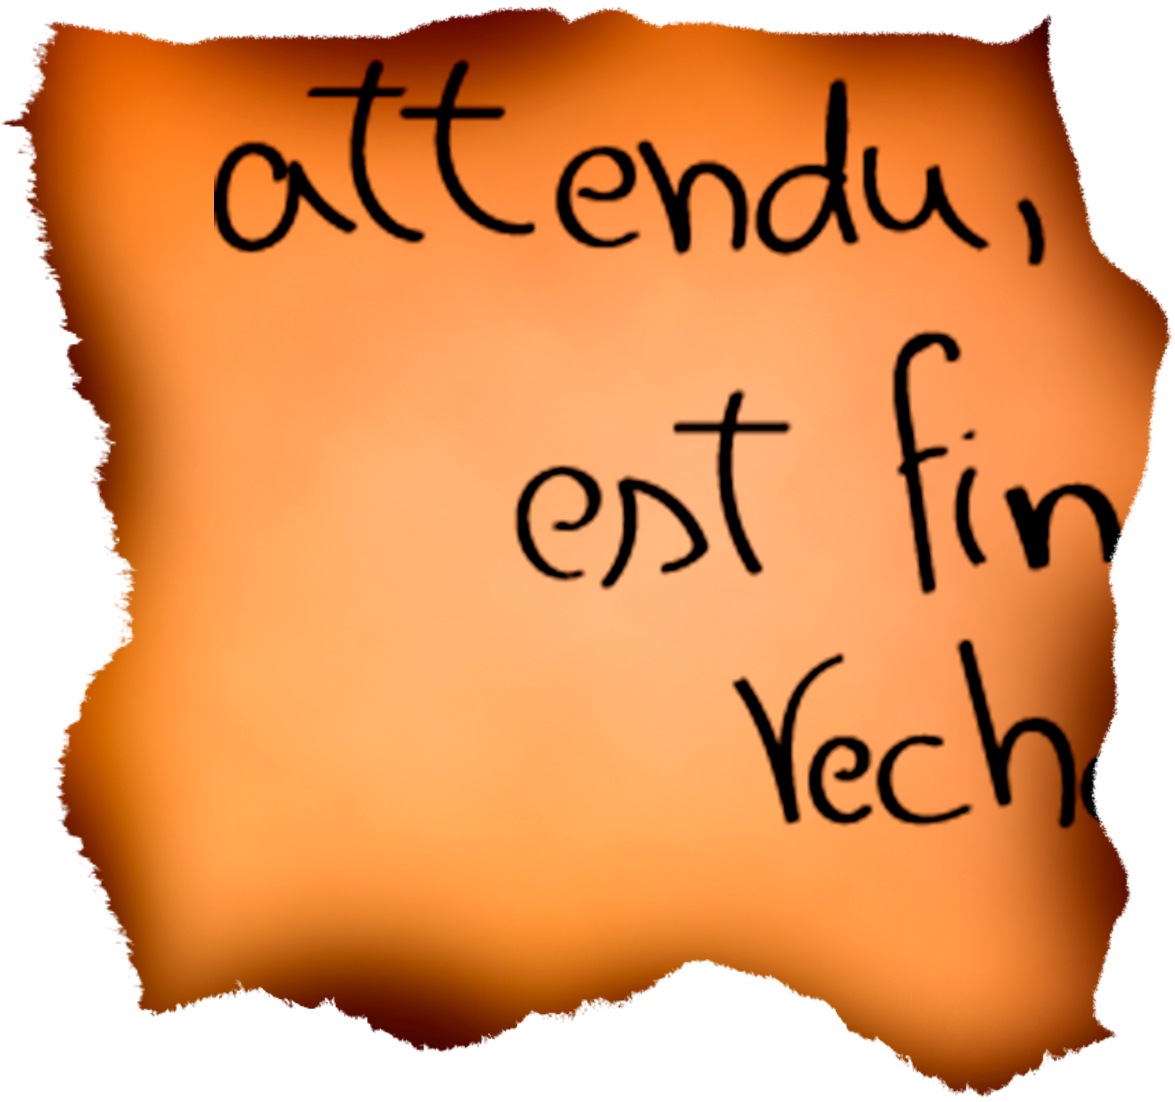 attendu,
est fin
rech